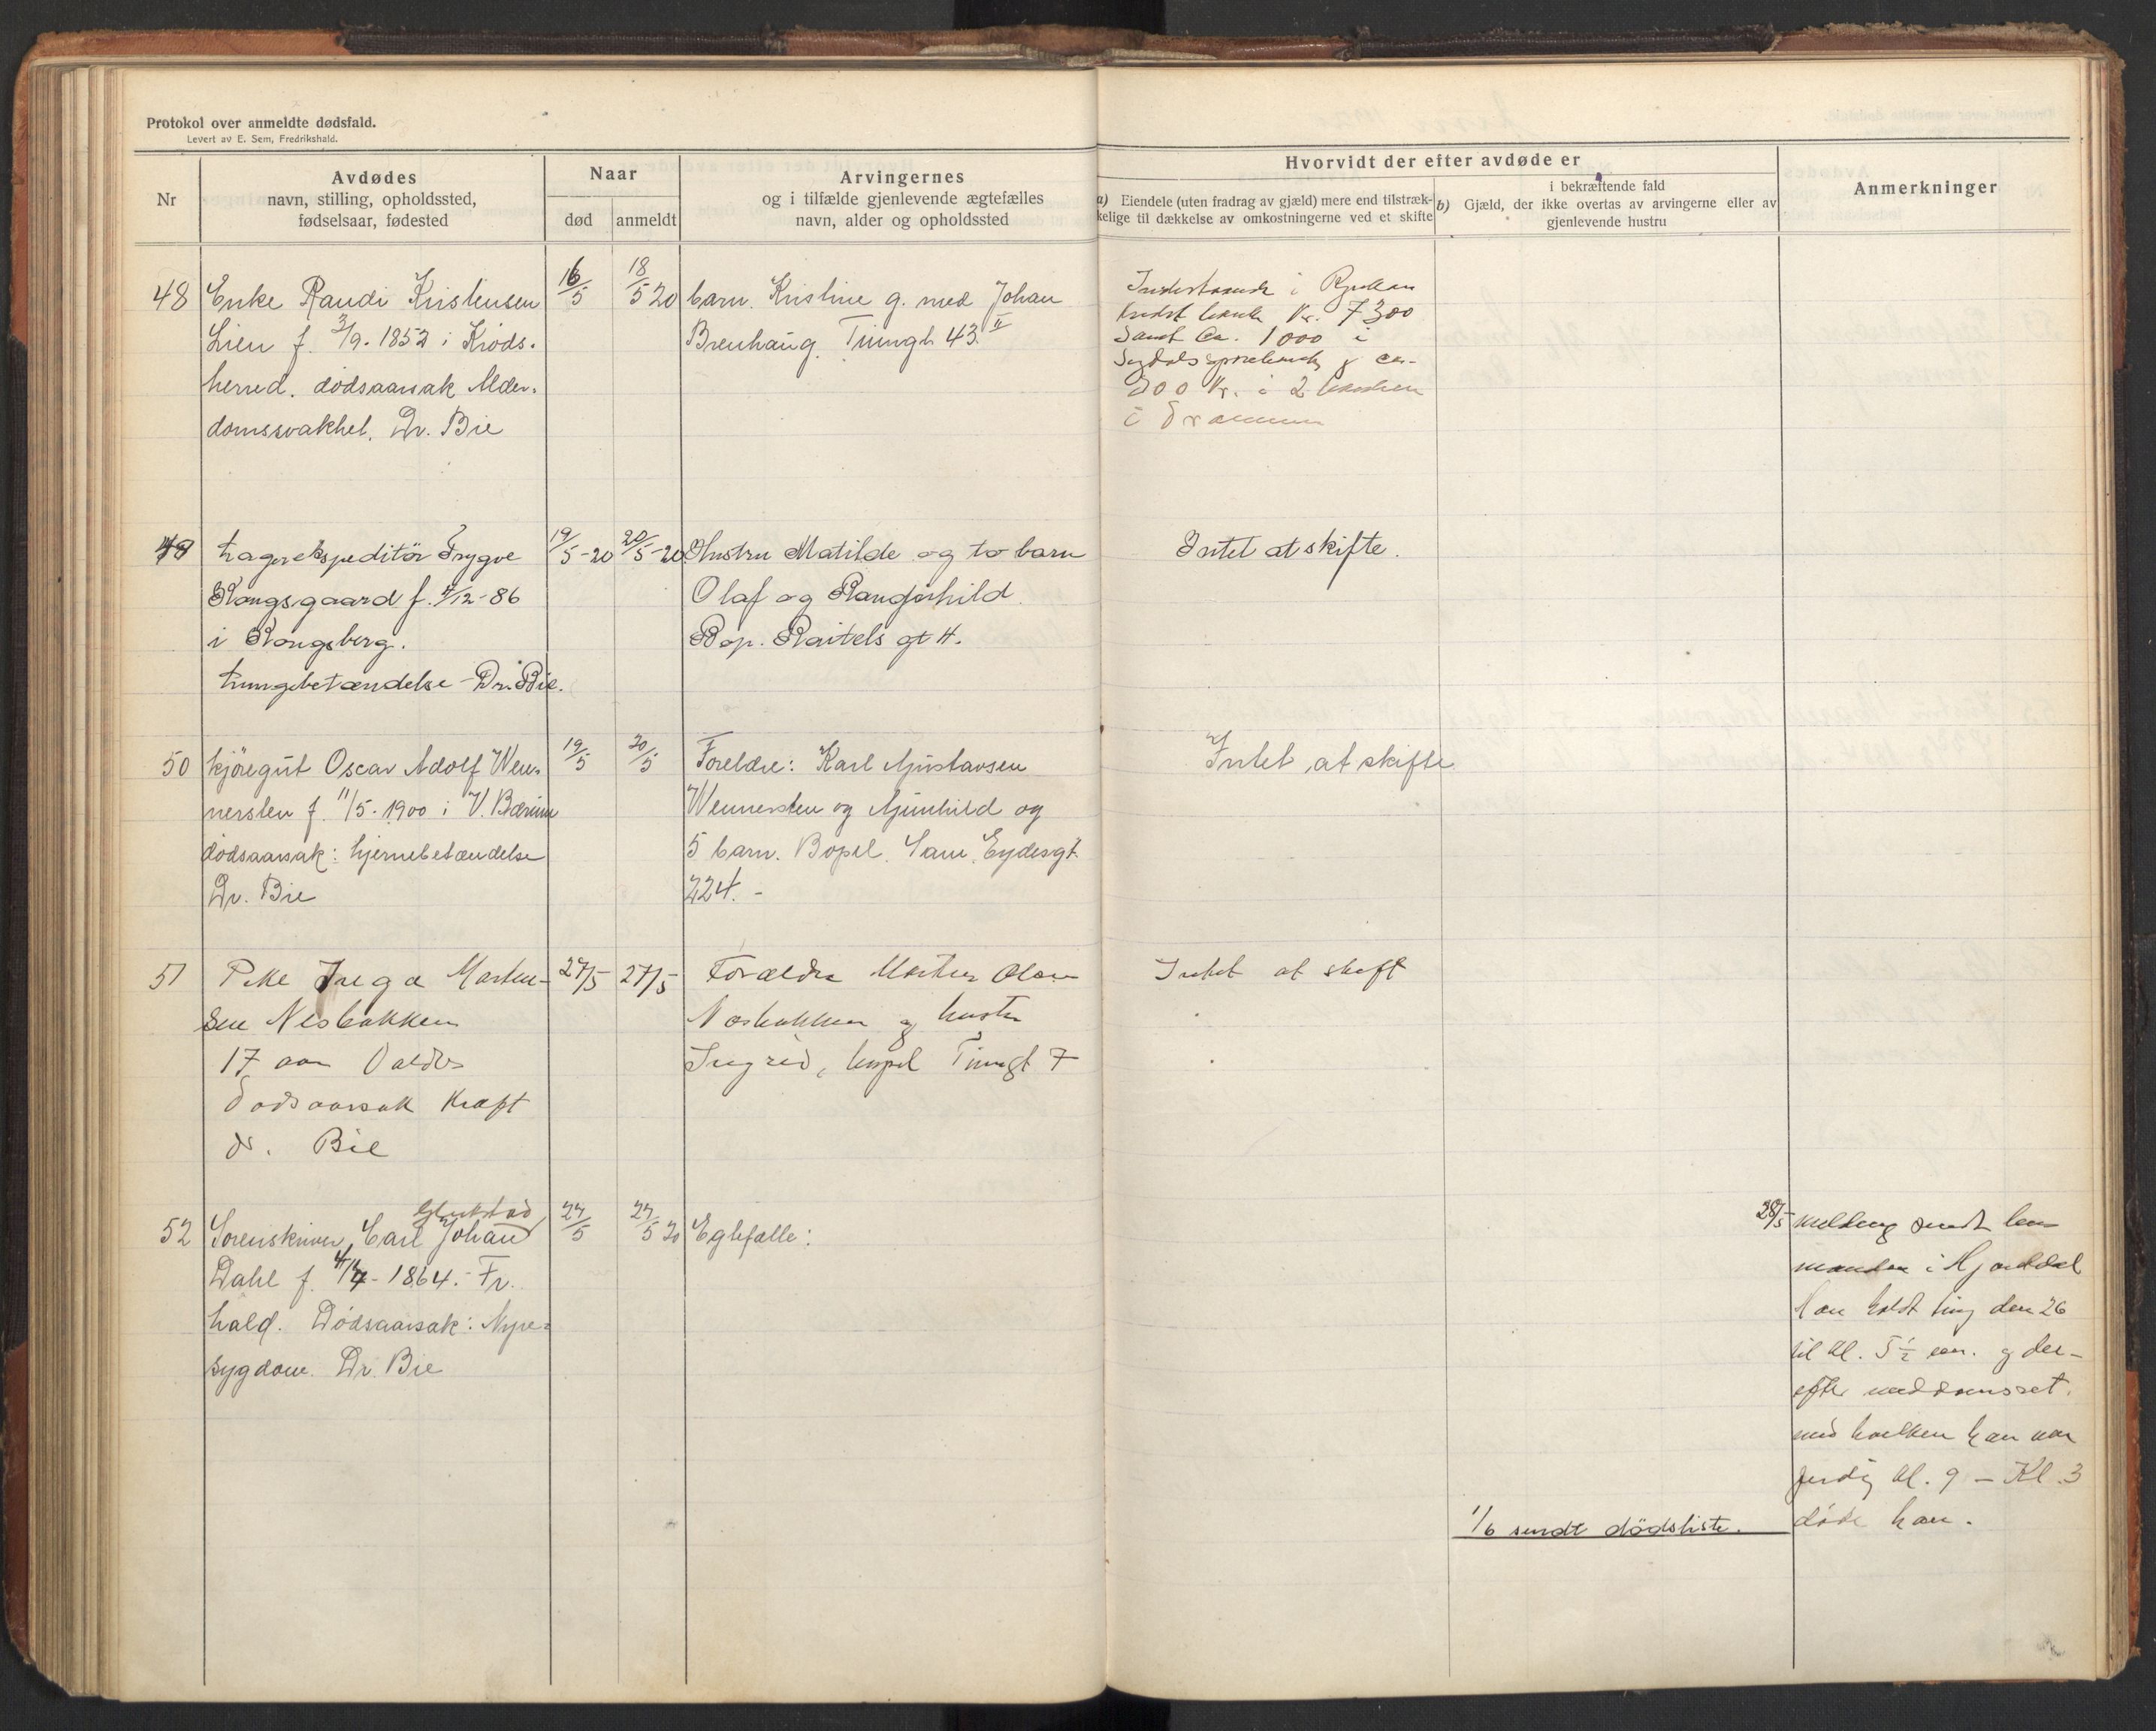 Protokol over anmeldte dødsfald.
Levert av E. Sem, Fredrikshald.
Nr
Avdødes
navn, stilling, opholdssted,
fødselsaar, fødested
Naar
død
anmeldt
Arvingernes
og i tilfælde gjenlevende ægtefælles
navn, alder og opholdssted
Hvorvidt der efter avdøde er
a) Eiendele (uten fradrag av gjæld) mere end tilstræk-
kelige til dækkelse av omkostningerne ved et skifte
i bekræftende fald
b) Gjæld, der ikke overtas av arvingerne eller av
gjenlevende hustru
Anmerkninger
48
Enke Randi Kristensen
Lien f. 3/9. 1852 i Kröds-
herred. dødsaarsak Alder-
domssvakhet. Dr. Bie
16/5
18/5 20
barn. Kristine g. med Johan
Brenhaug. Tinngt. 43 II
Indestaaende i Rjukan
Kr. 7300
Samt ca. 1000 i
Sigdals sparebank og ca.
i 2 banker
i Drammen
49
Lagerekspeditör Trygve
Kongsgaard f. 4/12-86
i Kongsberg.
Lungebetændelse Dr. Bie.
19/5-20
20/5-20
Hustru Matilde og to barn
Olaf og Rangnhild.
Bop. gt 4.
Intet at skifte.
50
Kjöregut Oscar Adolf Wen-
nersten f. 11/5-1900 i V. Bærum
dødsaarsak: hjernebetændelse
Dr. Bie
19/5
20/5
Foreldre: Karl Gustavsen
Wennersten og Gunhild og
5 barn. Bopel. Sam. Eydesgt.
224.-
Intet at skifte
51
Pike Inga Marten-
sen Nesbakken
17 aar Valdres
Dødsaarsak Kræft
dr. Bie
27/5
27/5
Forældre Morten Olsen
Nesbakken og hustru
Ingrid, bopel Tinngt 7
Intet at skift
52
Glückstad
Sorenskriver Carl Johan
Dahl f. 4/4-1864. Fr.
hald. Dødsaarsak: Nyre-
sygdom. Dr. Bie
27/5
27/5 20
Egtefælle:
28/5 melding sendt len-
manden i Hjartdal
Han holdt ting den 26
til kl. 5 1/2 em. og der-
efter meddomsret.
med hvilken han var
ferdig kl. 9 — Kl. 3
døde han.
1/6 sendt dødsliste.